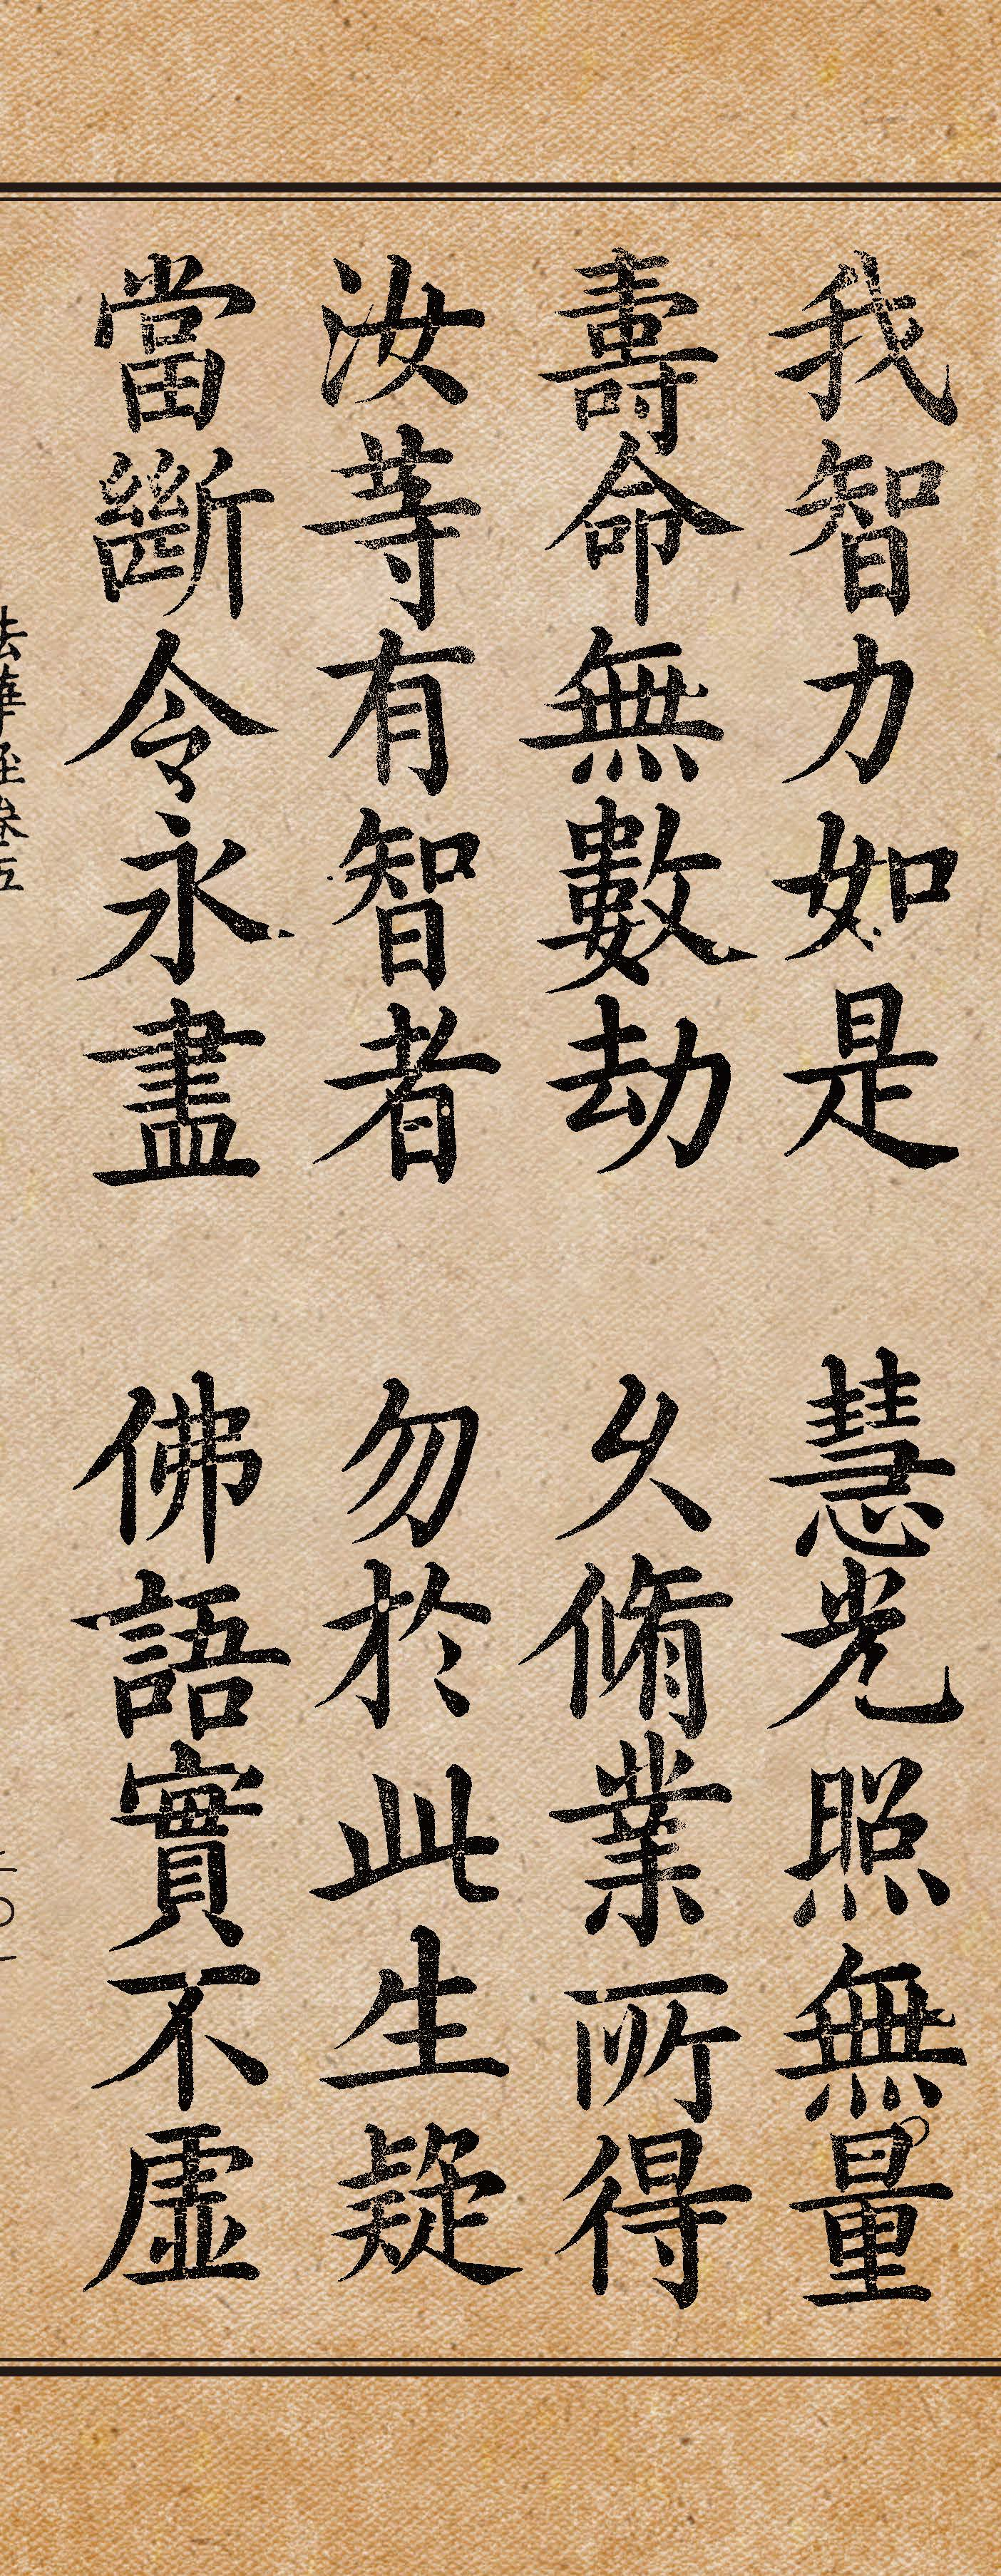 我智力如是 慧光照無量
壽命無數劫 久脩業所得
汝等有智者 勿於此生疑
當斷令永盡 佛語實不虛
法華經卷五 二〇一